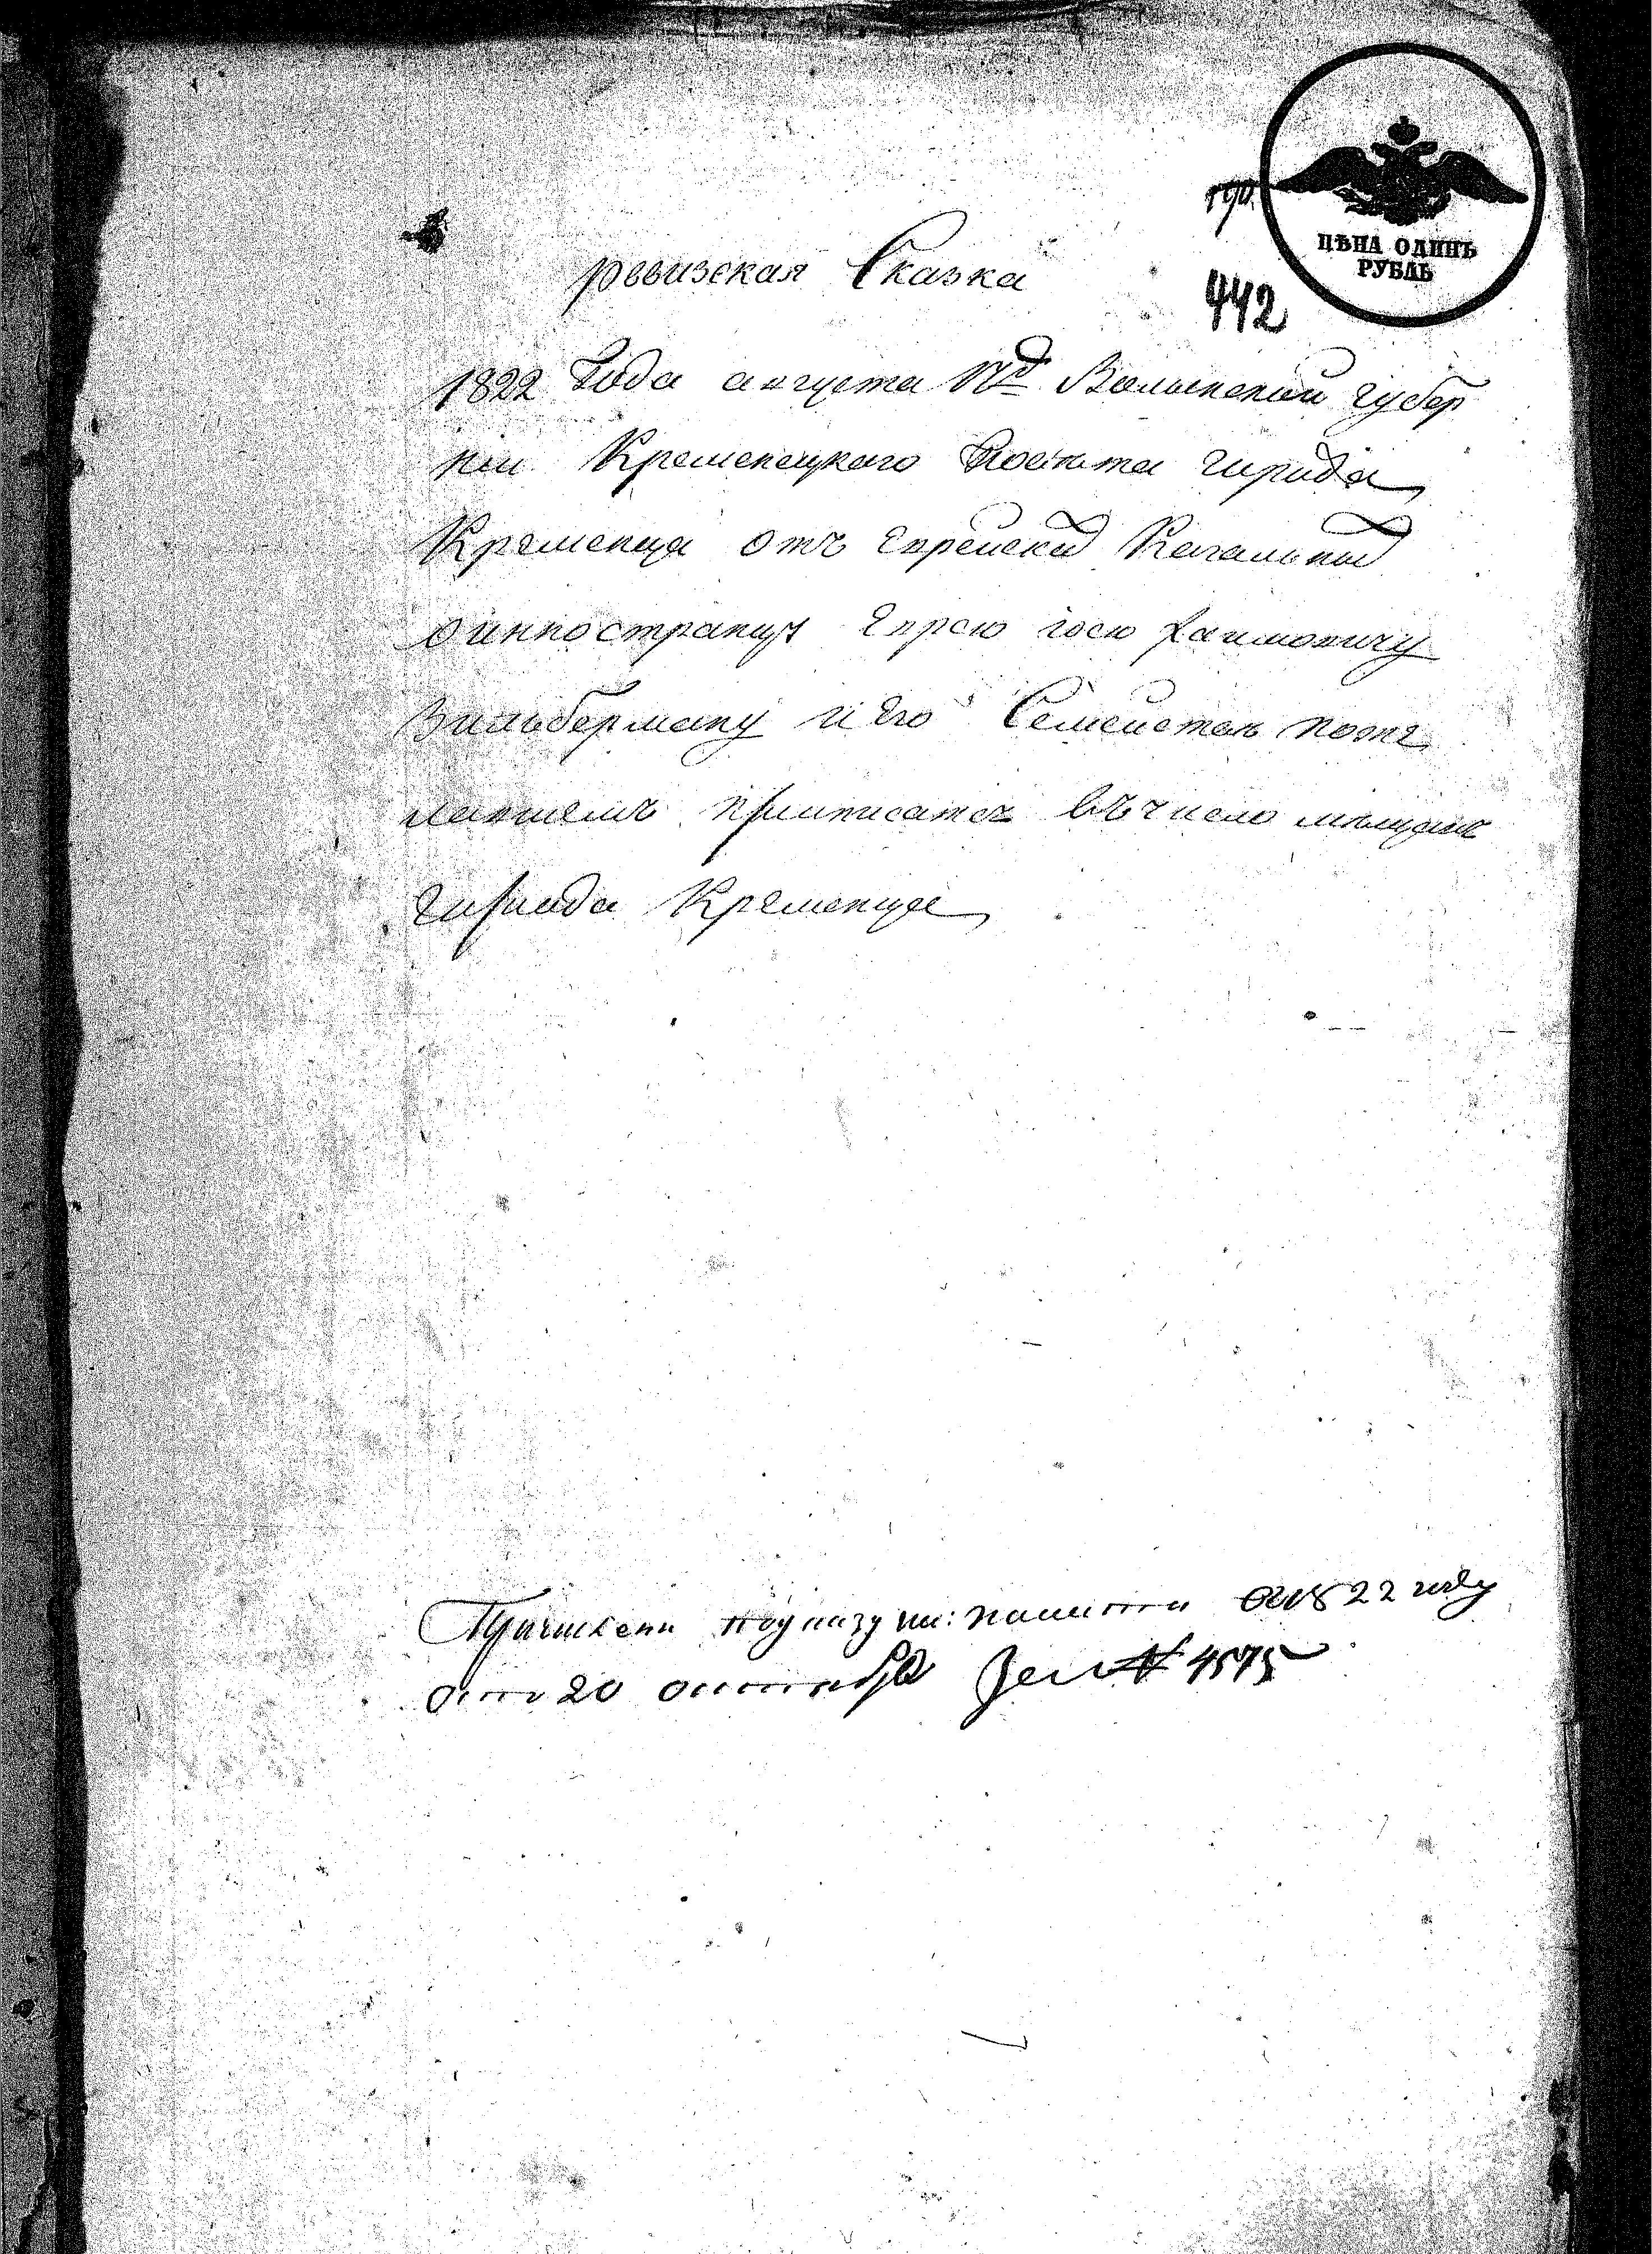 ЦѢНА ОДИНЪ
РУБЛЬ
442
ревизская Сказка
1822 Года августа Волынской губер
нии Кременецкого Повета города
Кременца отъ Еврейск Кагальных
о инностранцу Еврею Иосю Хаимовичу
Зильберману и Его Семействе поже
лавшемъ приписатся въ число мещанъ
города Кременца
Причислены по указу па: 1822 году
отъ 20 октября за № 4575